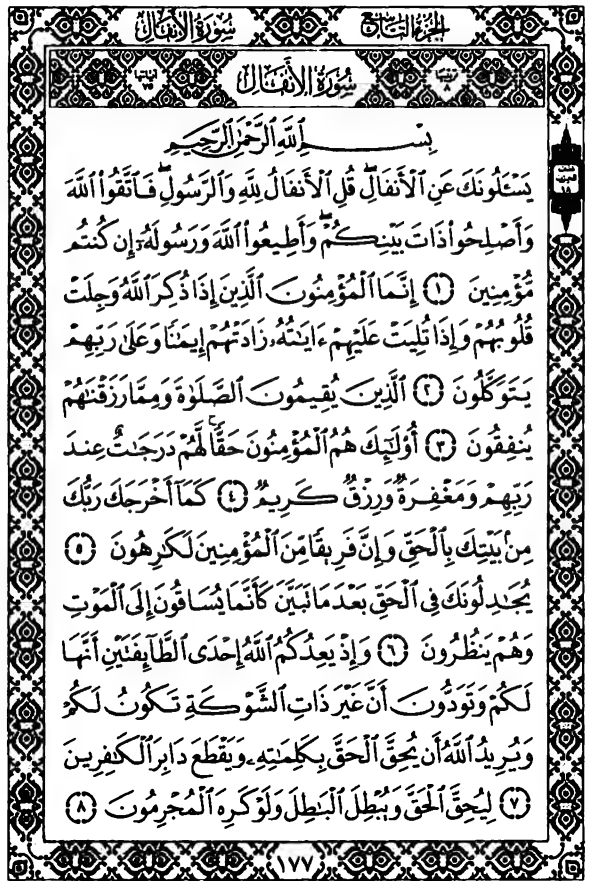 الجزء التاسع سورة الأنفال
سُورَةُ الأَنفَالِ
بِسْمِ اللَّهِ الرَّحْمَٰنِ الرَّحِيمِ
يَسْـَٔلُونَكَ عَنِ الْأَنفَالِ ۖ قُلِ الْأَنفَالُ لِلَّهِ وَالرَّسُولِ ۖ فَاتَّقُوا۟ اللَّهَ
وَأَصْلِحُوا۟ ذَاتَ بَيْنِكُمْ ۖ وَأَطِيعُوا۟ اللَّهَ وَرَسُولَهُۥٓ إِن كُنتُم
مُّؤْمِنِينَ ﴿١﴾ إِنَّمَا الْمُؤْمِنُونَ الَّذِينَ إِذَا ذُكِرَ اللَّهُ وَجِلَتْ
قُلُوبُهُمْ وَإِذَا تُلِيَتْ عَلَيْهِمْ ءَايَٰتُهُۥ زَادَتْهُمْ إِيمَٰنًا وَعَلَىٰ رَبِّهِمْ
يَتَوَكَّلُونَ ﴿٢﴾ الَّذِينَ يُقِيمُونَ الصَّلَوٰةَ وَمِمَّا رَزَقْنَٰهُمْ
يُنفِقُونَ ﴿٣﴾ أُو۟لَٰٓئِكَ هُمُ الْمُؤْمِنُونَ حَقًّا ۚ لَّهُمْ دَرَجَٰتٌ عِندَ
رَبِّهِمْ وَمَغْفِرَةٌ وَرِزْقٌ كَرِيمٌ ﴿٤﴾ كَمَآ أَخْرَجَكَ رَبُّكَ
مِنۢ بَيْتِكَ بِالْحَقِّ وَإِنَّ فَرِيقًا مِّنَ الْمُؤْمِنِينَ لَكَٰرِهُونَ ﴿٥﴾
يُجَٰدِلُونَكَ فِي الْحَقِّ بَعْدَ مَا تَبَيَّنَ كَأَنَّمَا يُسَاقُونَ إِلَى الْمَوْتِ
وَهُمْ يَنظُرُونَ ﴿٦﴾ وَإِذْ يَعِدُكُمُ اللَّهُ إِحْدَى الطَّآئِفَتَيْنِ أَنَّهَا
لَكُمْ وَتَوَدُّونَ أَنَّ غَيْرَ ذَاتِ الشَّوْكَةِ تَكُونُ لَكُمْ
وَيُرِيدُ اللَّهُ أَن يُحِقَّ الْحَقَّ بِكَلِمَٰتِهِۦ وَيَقْطَعَ دَابِرَ الْكَٰفِرِينَ
﴿٧﴾ لِيُحِقَّ الْحَقَّ وَيُبْطِلَ الْبَٰطِلَ وَلَوْ كَرِهَ الْمُجْرِمُونَ ﴿٨﴾
١٧٧